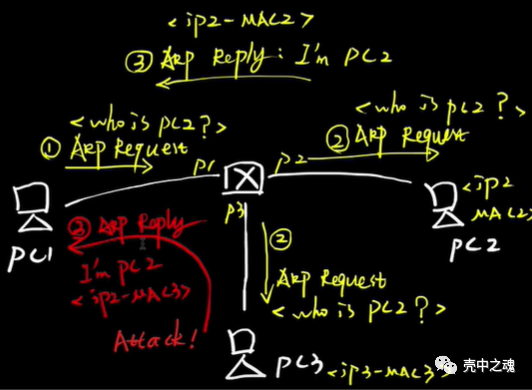 <ip2-MAC2>
③ Arp Reply: I'm PC2
<who is pc2?>
① Arp Request
<who is pc2?>
② Arp Request
p1
p2
p3
<ip2
MAC2>
PC1
PC2
③ Arp Reply
I'm pc2
<ip2-MAC3>
Attack!
②
Arp Request
<who is pc2?>
PC3 <ip3-MAC3>
壳中之魂